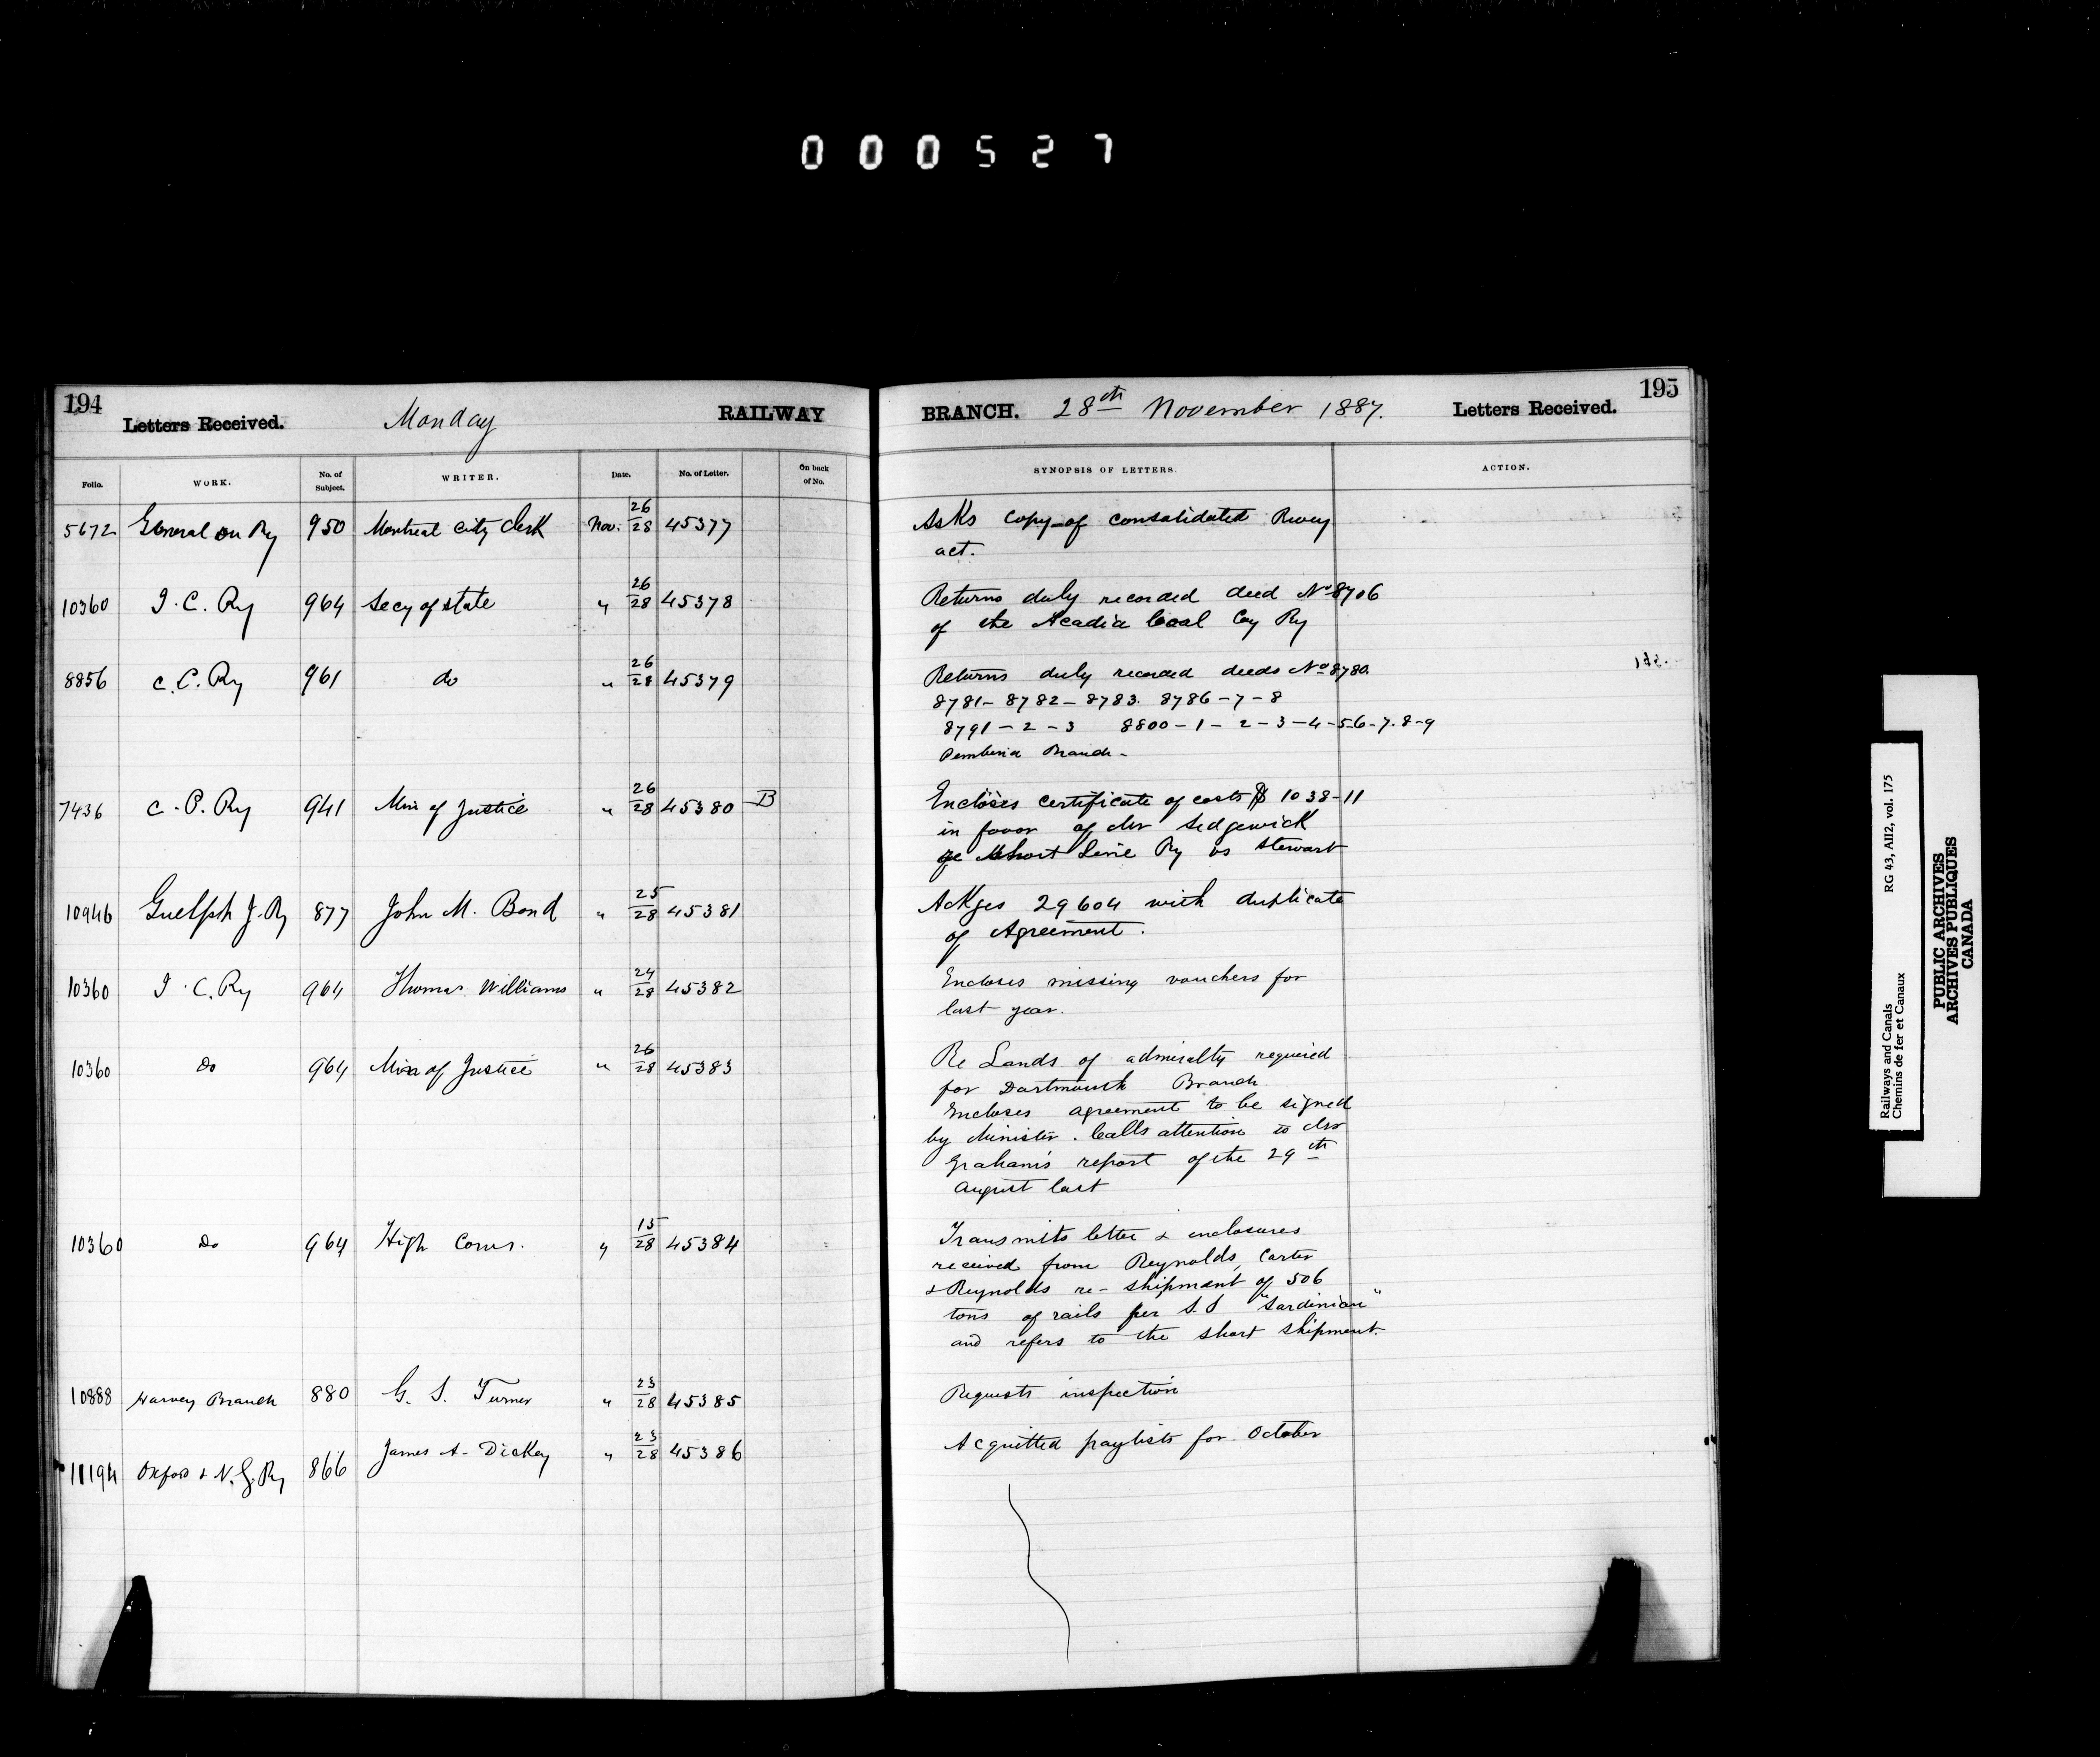 000527
194
Letters Received. Monday RAILWAY
BRANCH. 28th November 1887. Letters Received. 195
Folio. WORK. No. of Subject. WRITER. Date. No. of Letter. On back of No.
SYNOPSIS OF LETTERS. ACTION.
5672 General on Ry 950 Montreal City Clerk Nov. 26/28 45377
Asks copy of consolidated Rwey
act.
10360 I. C. Ry 964 Secy of State " 26/28 45378
Returns duly recorded deed No 8706
of the Acadia Coal Coy Ry
8856 C. C. Ry 961 do " 26/28 45379
Returns duly recorded deeds No 8780.
8781 - 8782 - 8783. 8786 - 7 - 8
8791 - 2 - 3 8800 - 1 - 2 - 3 - 4 - 5 - 6 - 7. 8 - 9
Pembina Branch -
7436 C. P. Ry 941 Min of Justice " 26/28 45380 B
Encloses certificate of costs $ 1038-11
in favor of Mr Sedgewick
re Short Line Ry vs Stewart
10946 Guelph J. Ry 877 John M. Bond " 25/28 45381
Ackges 29604 with duplicate
of Agreement.
10360 I. C. Ry 964 Thomas Williams " 24/28 45382
Encloses missing vouchers for
last year.
10360 Do 964 Min of Justice " 26/28 45383
Re Lands of admiralty required
for Dartmouth Branch
Encloses agreement to be signed
by Minister. Calls attention to Mr
Graham's report of the 29th
August last
10360 Do 964 High Comr. " 15/28 45384
Transmits letter & enclosures
received from Reynolds, Carter
& Reynolds re - shipment of 506
tons of rails per S.S "Sardinian"
and refers to the short shipment.
10888 Harvey Branch 880 G. S. Turner " 23/28 45385
Requests inspection
11194 Oxford & N. G. Ry 866 James A. Dickey " 23/28 45386
Acquitted paylists for October
Railways and Canals RG 43, AII2, vol. 175
Chemins de fer et Canaux
PUBLIC ARCHIVES
ARCHIVES PUBLIQUES
CANADA